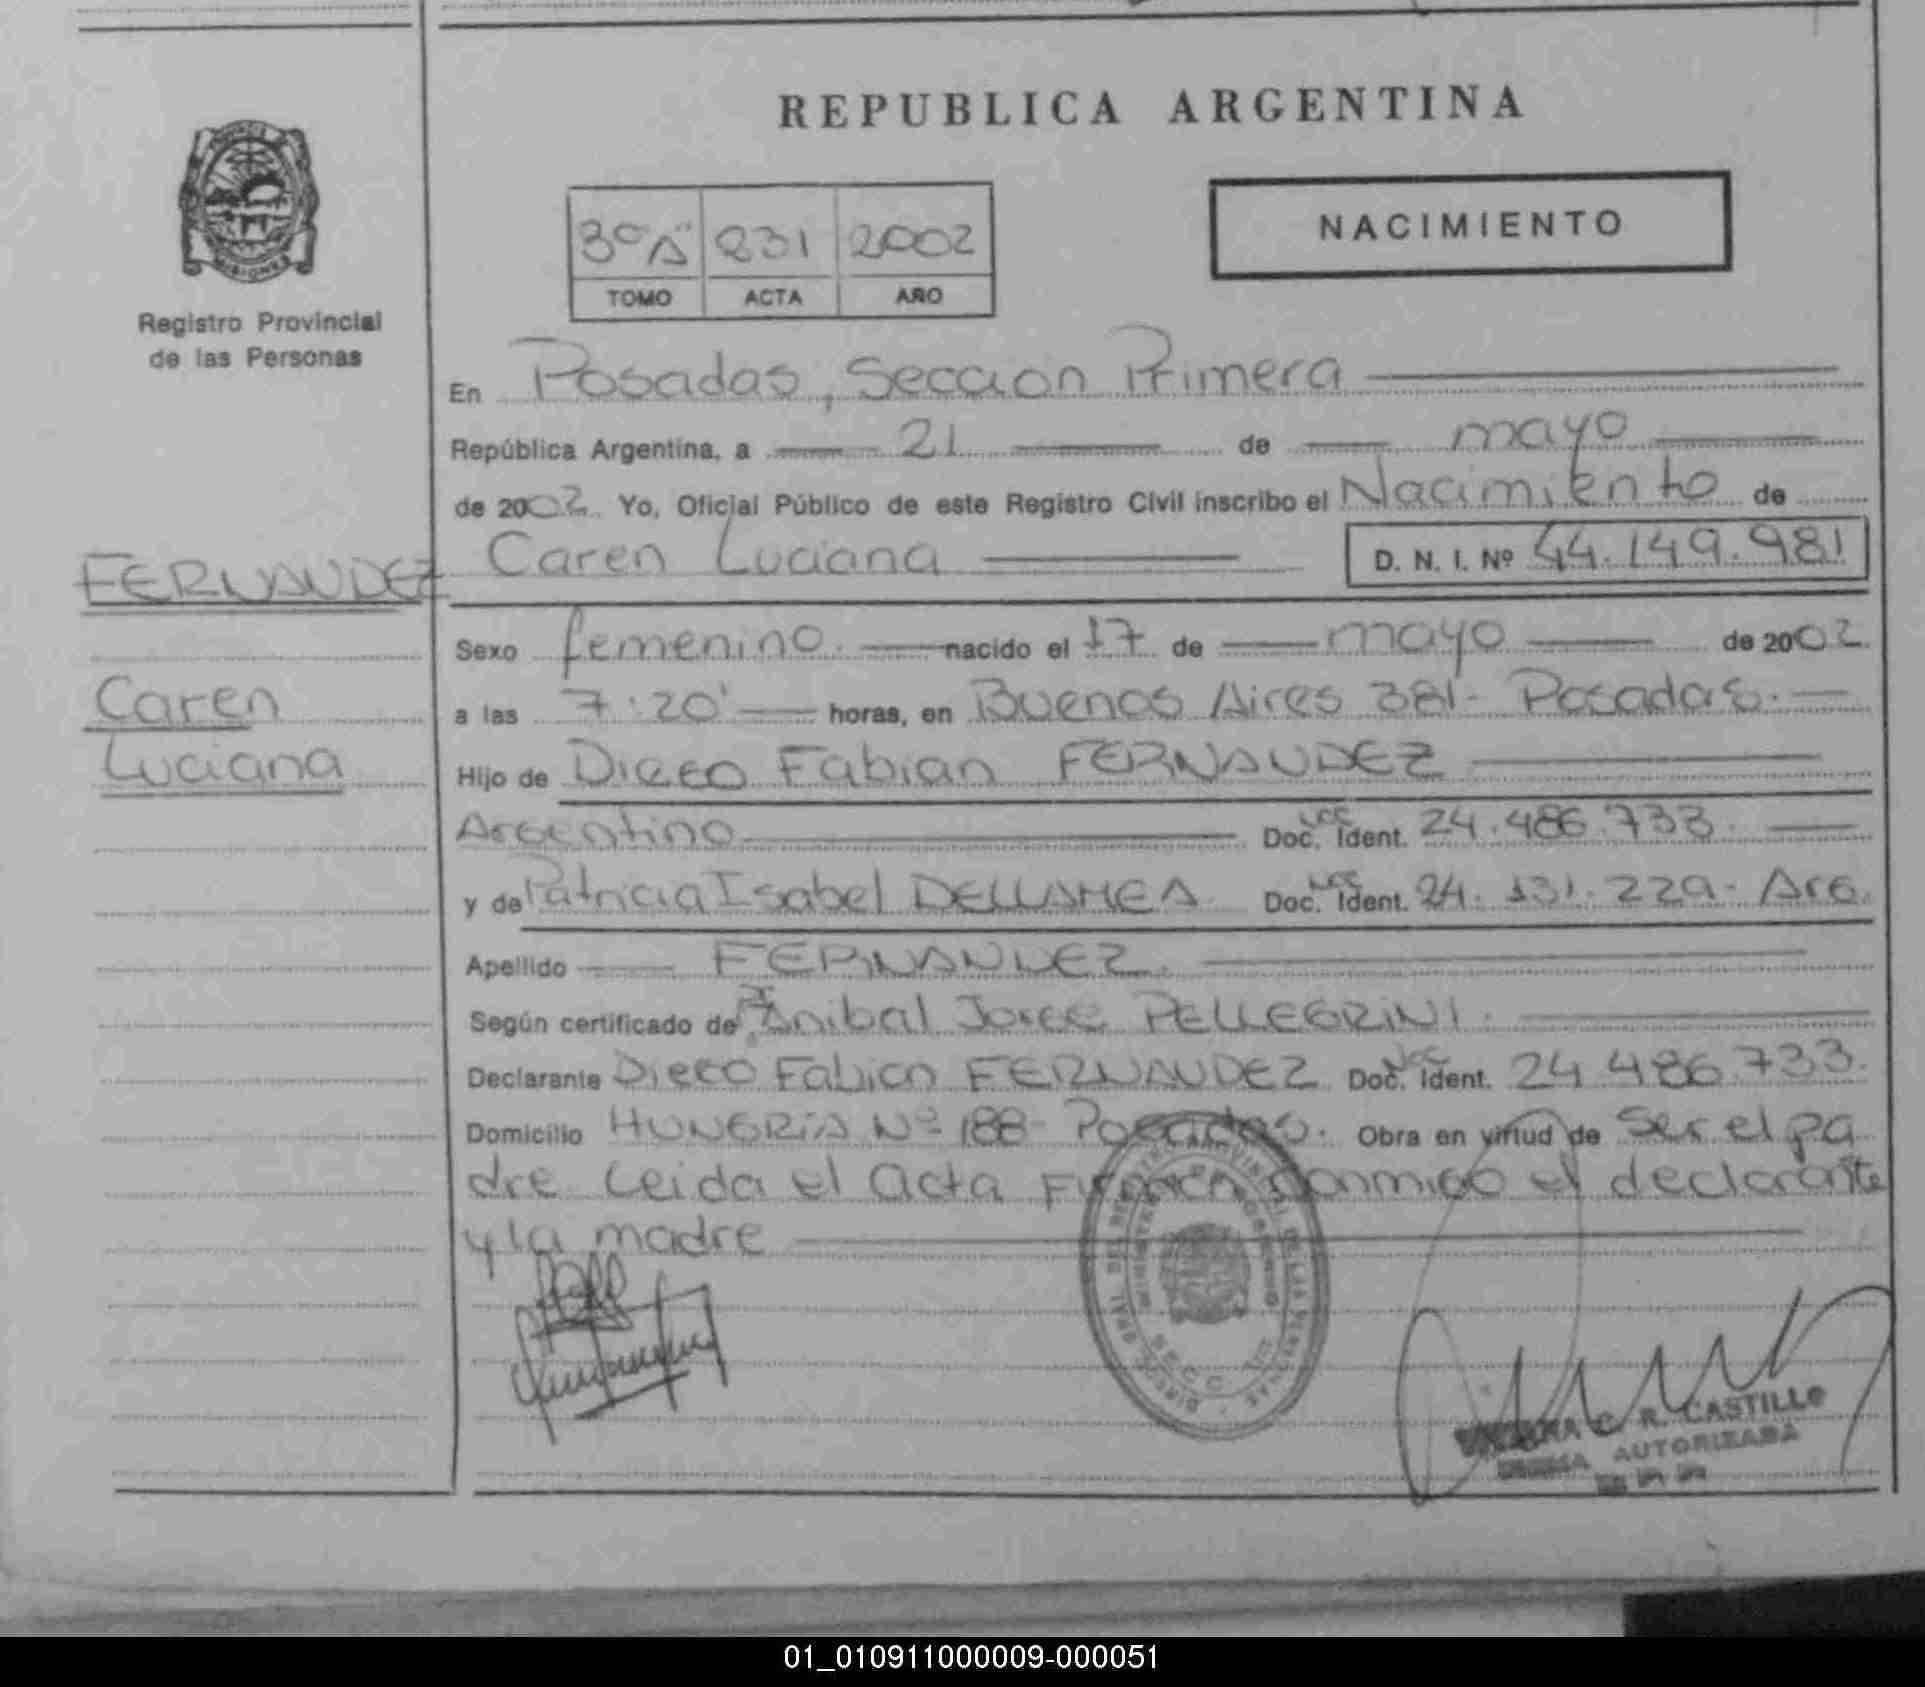 REPUBLICA ARGENTINA
MISIONES
Registro Provincial
de las Personas
3º "A" 831 2002
TOMO ACTA AÑO
NACIMIENTO
En Posadas, Sección Primera
República Argentina, a 21 de mayo
de 2002. Yo, Oficial Público de este Registro Civil inscribo el Nacimiento de
Caren Luciana D. N. I. Nº 44.149.981
FERNANDEZ
Caren
Luciana
Sexo femenino. nacido el 17 de mayo de 2002.
a las 7:20' horas, en Buenos Aires 381- Posadas.
Hijo de Diego Fabian FERNANDEZ
Argentino Doc. Ident. 24.486.733.
y de Patricia Isabel DELLAMEA Doc. Ident. 24.131.229- Arg.
Apellido FERNANDEZ.
Según certificado de Anibal Jorge PELLEGRINI.
Declarante Diego Fabian FERNANDEZ Doc. Ident. 24 486.733.
Domicilio HUNGRIA Nº 188- Posadas. Obra en virtud de Ser el pa
dre Leida el acta Firman conmigo el declarante
y la madre
C. R. CASTILLO
AUTORIZADA
01_010911000009-000051